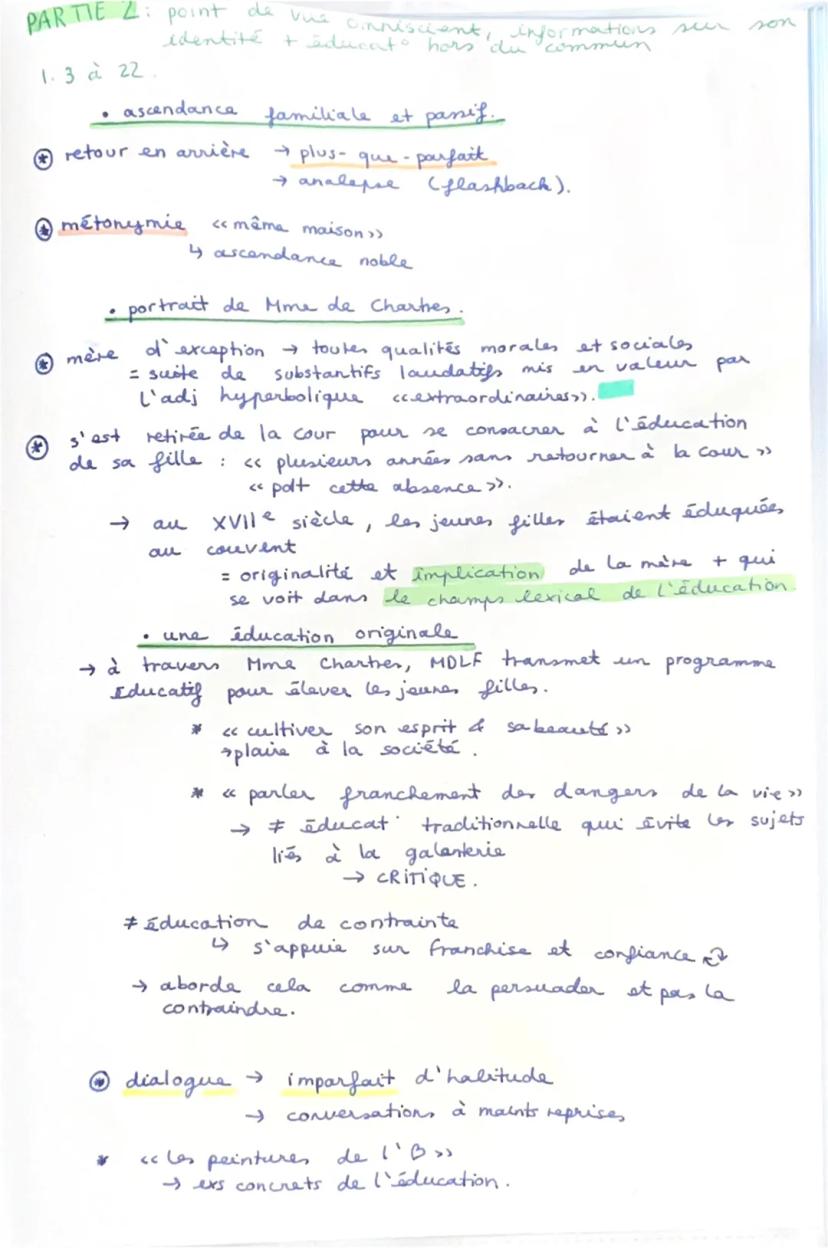 PARTIE 2 : point de vue omniscient, informations sur son
identité + éducat° hors du commun
l. 3 à 22.
• ascendance familiale et passif.
* retour en arrière → plus-que-parfait
→ analepse (flashback).
* métonymie << même maison >>
↳ ascendance noble
• portrait de Mme de Chartres.
* mère d'exception → toutes qualités morales et sociales
= suite de substantifs laudatifs mis en valeur par
l'adj hyperbolique << extraordinaires >>.
* s'est retirée de la cour pour se consacrer à l'éducation
de sa fille : << plusieurs années sans retourner à la cour >>
<< pdt cette absence >>.
→ au XVIIe siècle, les jeunes filles étaient éduquées
au couvent
= originalité et implication de la mère + qui
se voit dans le champs lexical de l'éducation.
• une éducation originale
→ à travers Mme Chartres, MDLF transmet un programme
Educatif pour élever les jeunes filles.
* << cultiver son esprit & sa beauté >>
→ plaire à la société.
* << parler franchement des dangers de la vie >>
→ ≠ éducat° traditionnelle qui évite les sujets
liés à la galanterie
→ CRITIQUE.
≠ éducation de contrainte
↳ s'appuie sur franchise et confiance
→ aborde cela comme la persuader et pas la
contraindre.
* dialogue → imparfait d'habitude
→ conversations à maints reprises
* << les peintures de l'B >>
→ exs concrets de l'éducation.